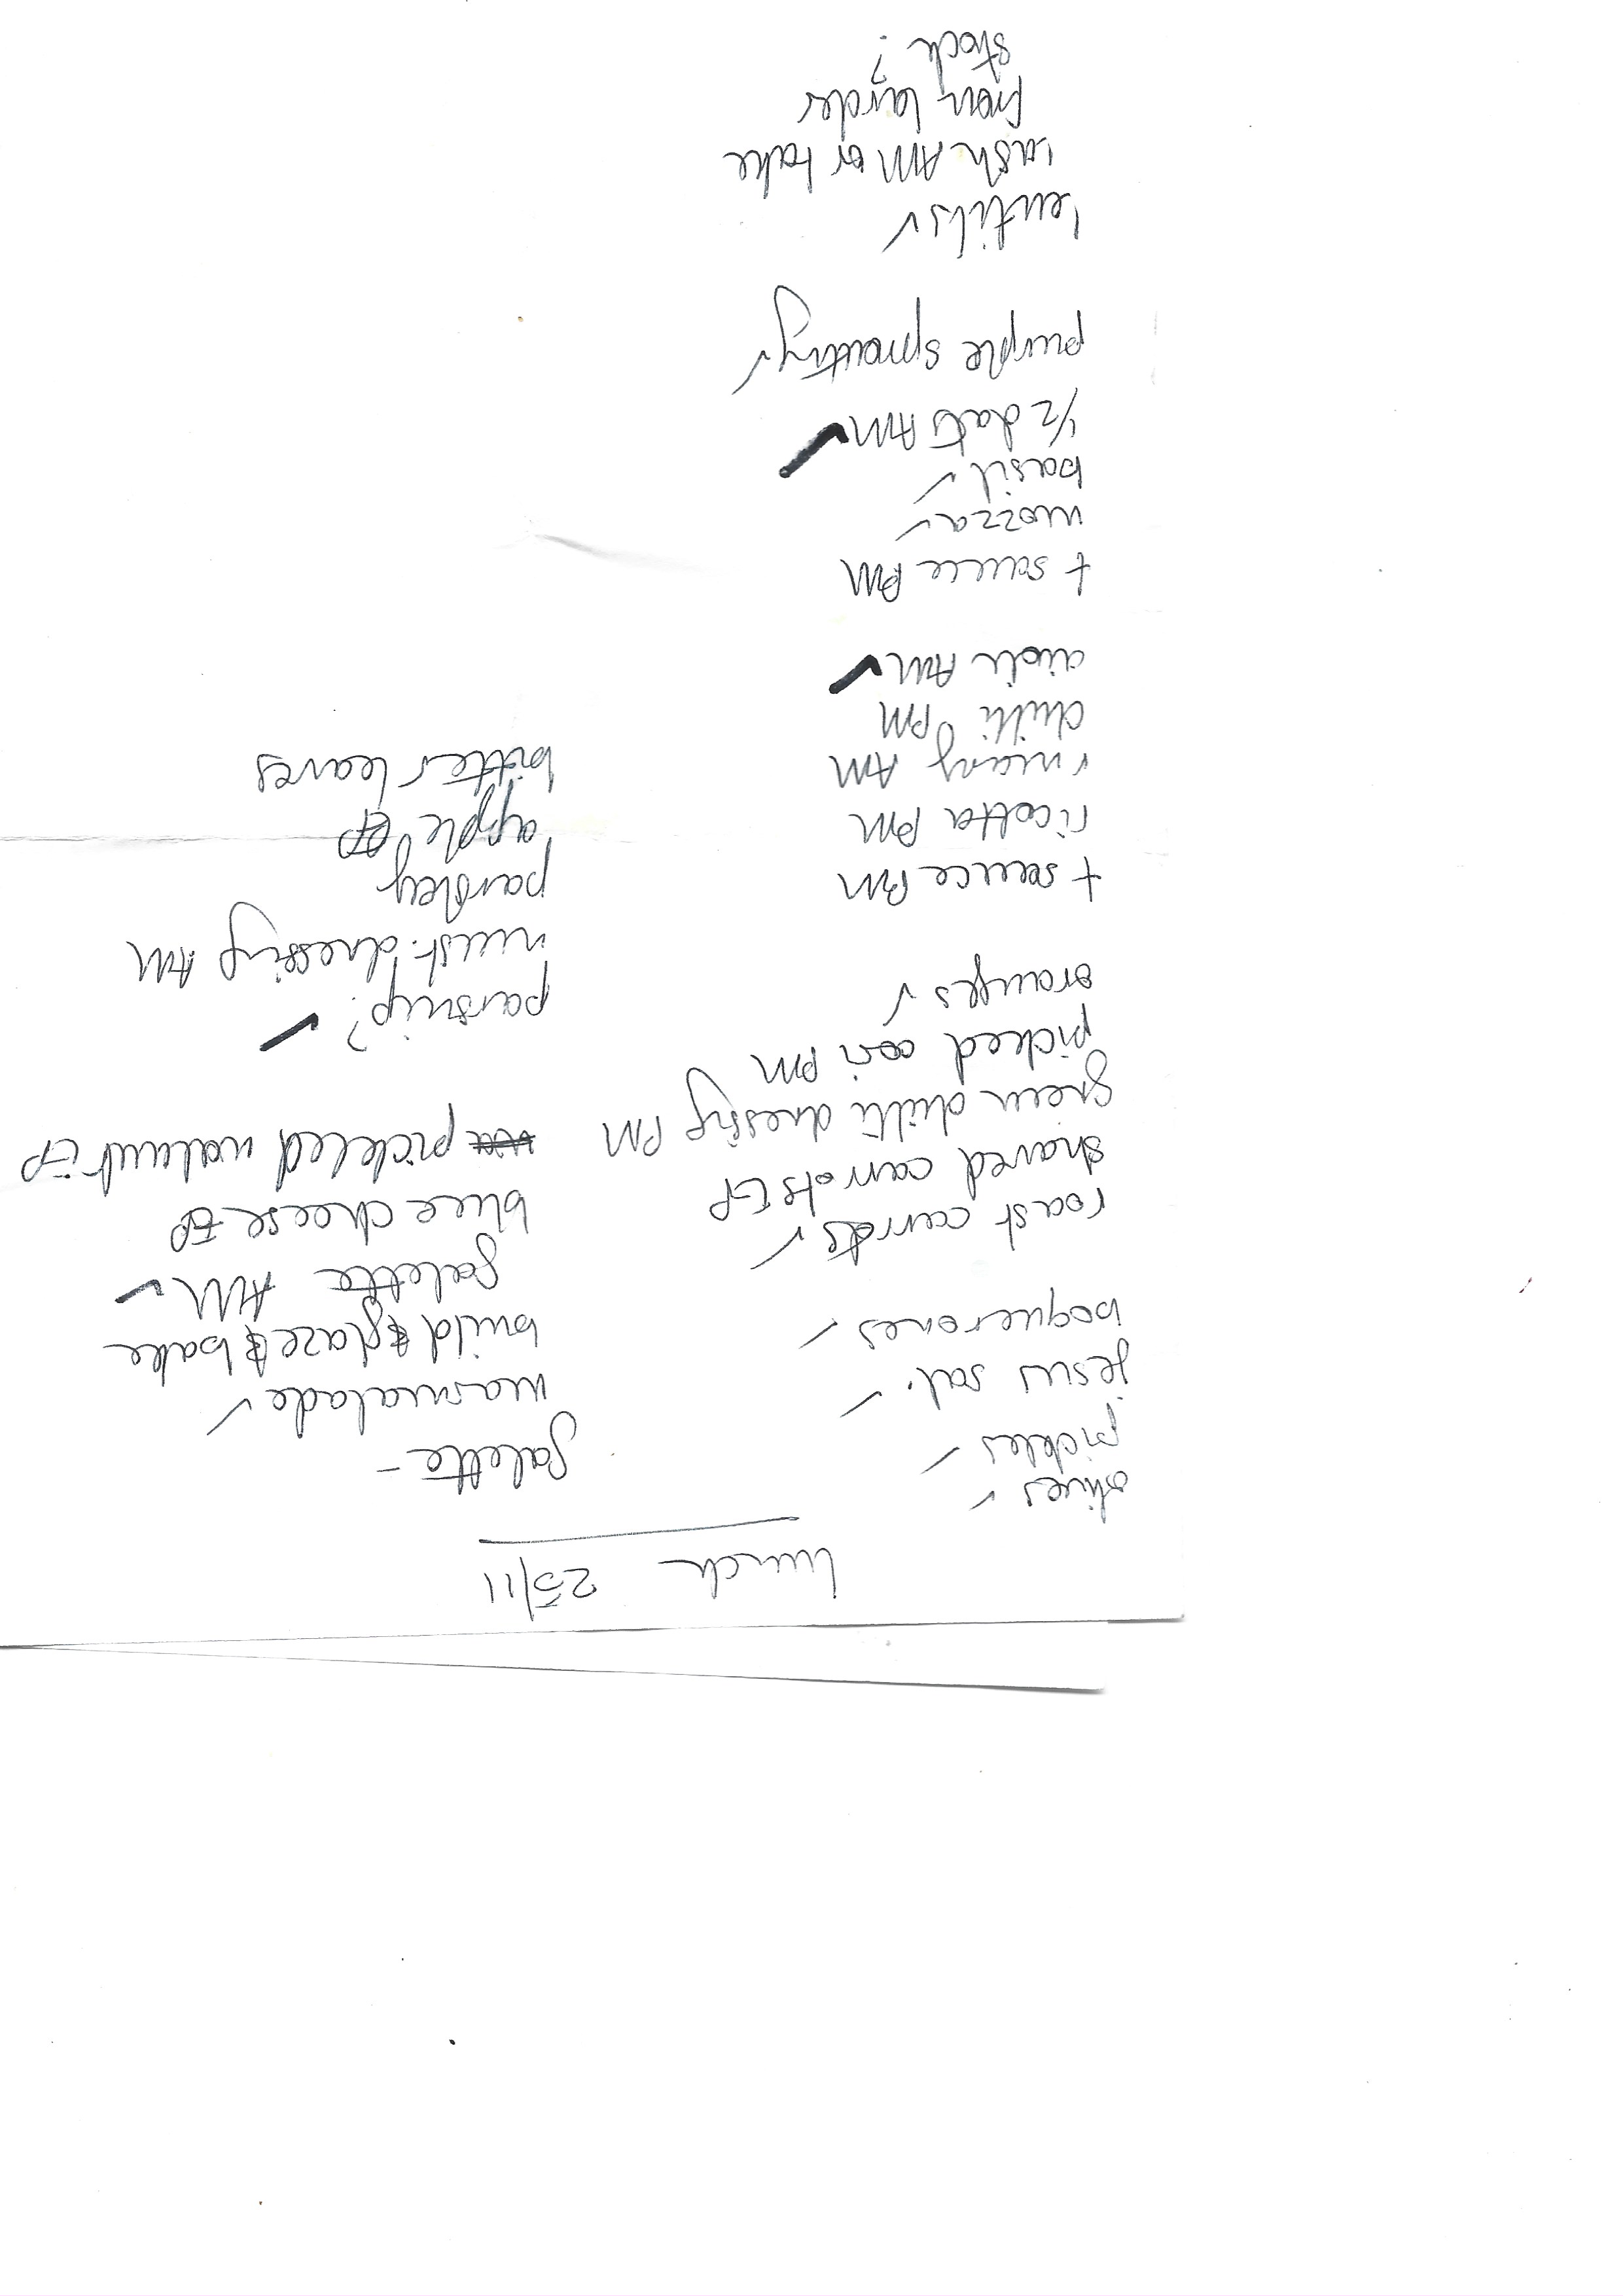 lunch 25/11
olives ✓
pickles ✓
jesus sal. ✓
boquerones ✓
roast carrots ✓
shaved carrots EP
green chilli dressing PM
picked cori PM
oranges ✓
+ sauce PM
ricotta PM
chilli PM
aioli AM ✓
+ sauce PM
mozza ✓
basil ✓
1/2 dats AM ✓
purple sprouting ✓
lentils ✓
wash AM or take
from larder
stock?
galette -
marmalade ✓
build & glaze & bake
galette AM ✓
blue cheese EP
pickled walnut EP
parsnip? ✓
must. dressing AM
parsley
apple EP
bitter leaves